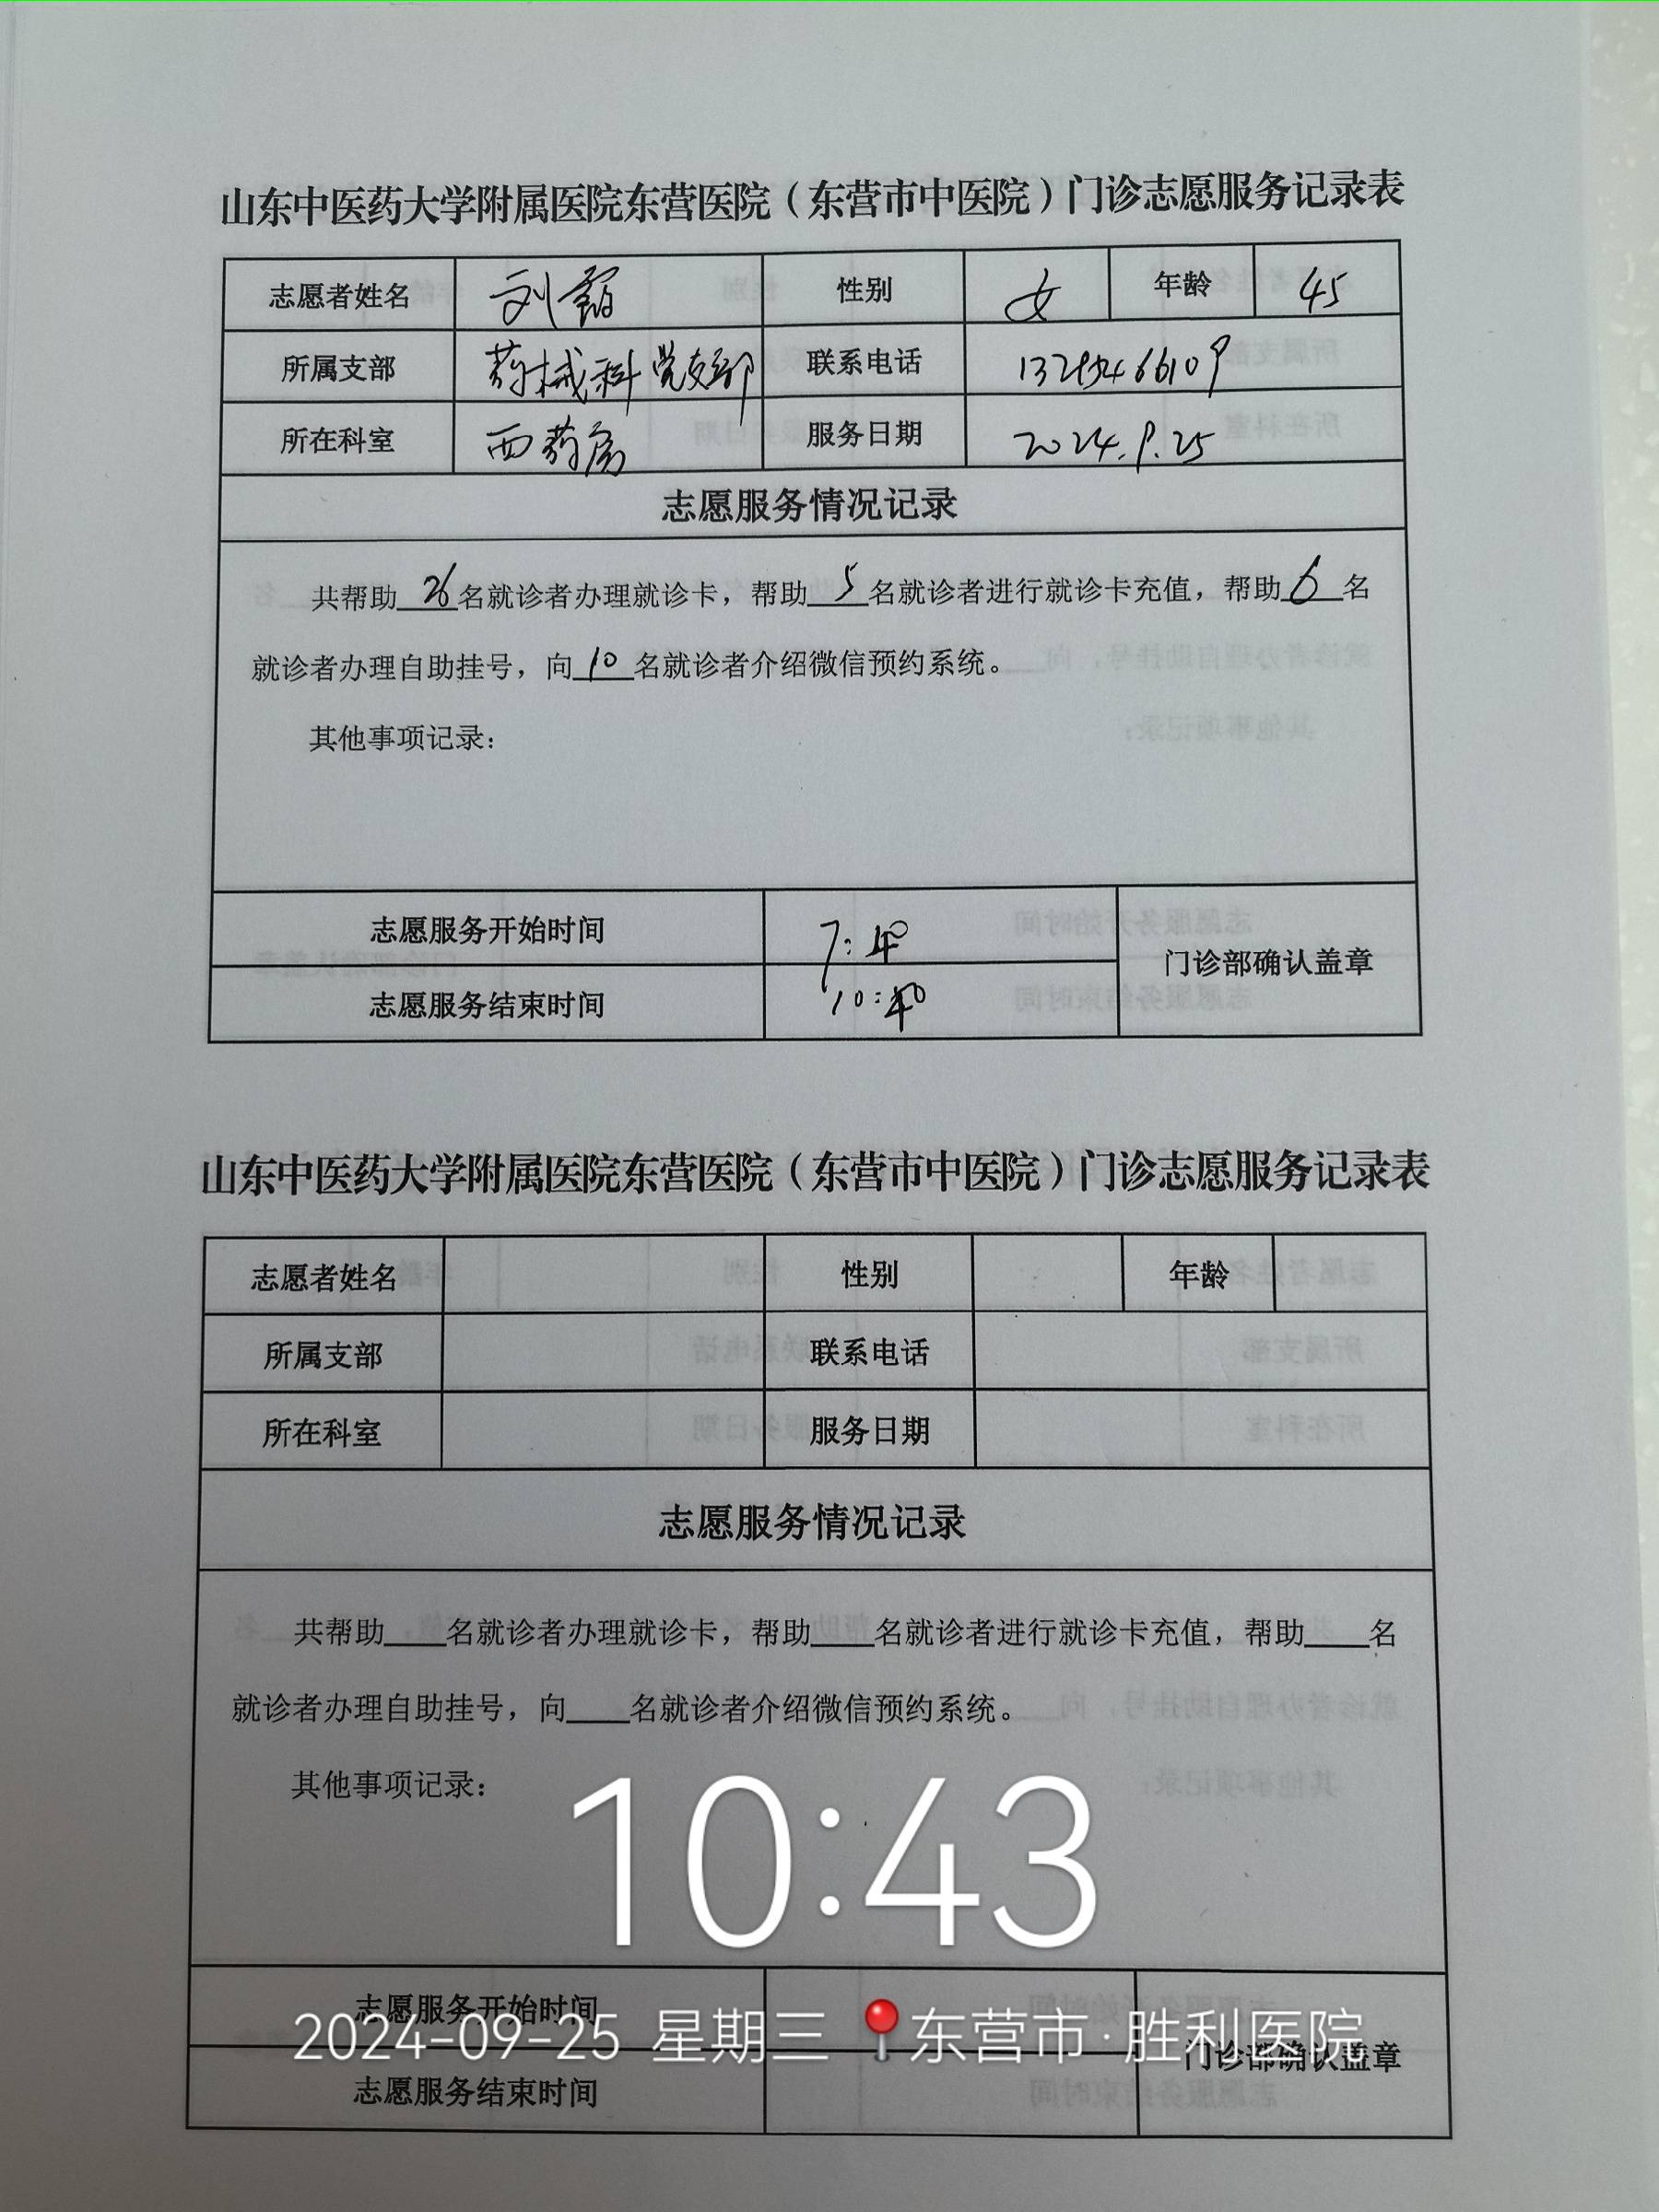 山东中医药大学附属医院东营医院（东营市中医院）门诊志愿服务记录表
志愿者姓名 刘 性别 女 年龄 45
所属支部 药械科党支部 联系电话
所在科室 西药房 服务日期 2024.9.25
志愿服务情况记录
共帮助26名就诊者办理就诊卡，帮助5名就诊者进行就诊卡充值，帮助6名
就诊者办理自助挂号，向10名就诊者介绍微信预约系统。
其他事项记录：
志愿服务开始时间 7:40
门诊部确认盖章
志愿服务结束时间 10:40
山东中医药大学附属医院东营医院（东营市中医院）门诊志愿服务记录表
志愿者姓名 性别 年龄
所属支部 联系电话
所在科室 服务日期
志愿服务情况记录
共帮助____名就诊者办理就诊卡，帮助____名就诊者进行就诊卡充值，帮助____名
就诊者办理自助挂号，向____名就诊者介绍微信预约系统。
其他事项记录：
10:43
志愿服务开始时间
2024-09-25 星期三 东营市·胜利医院
门诊部确认盖章
志愿服务结束时间